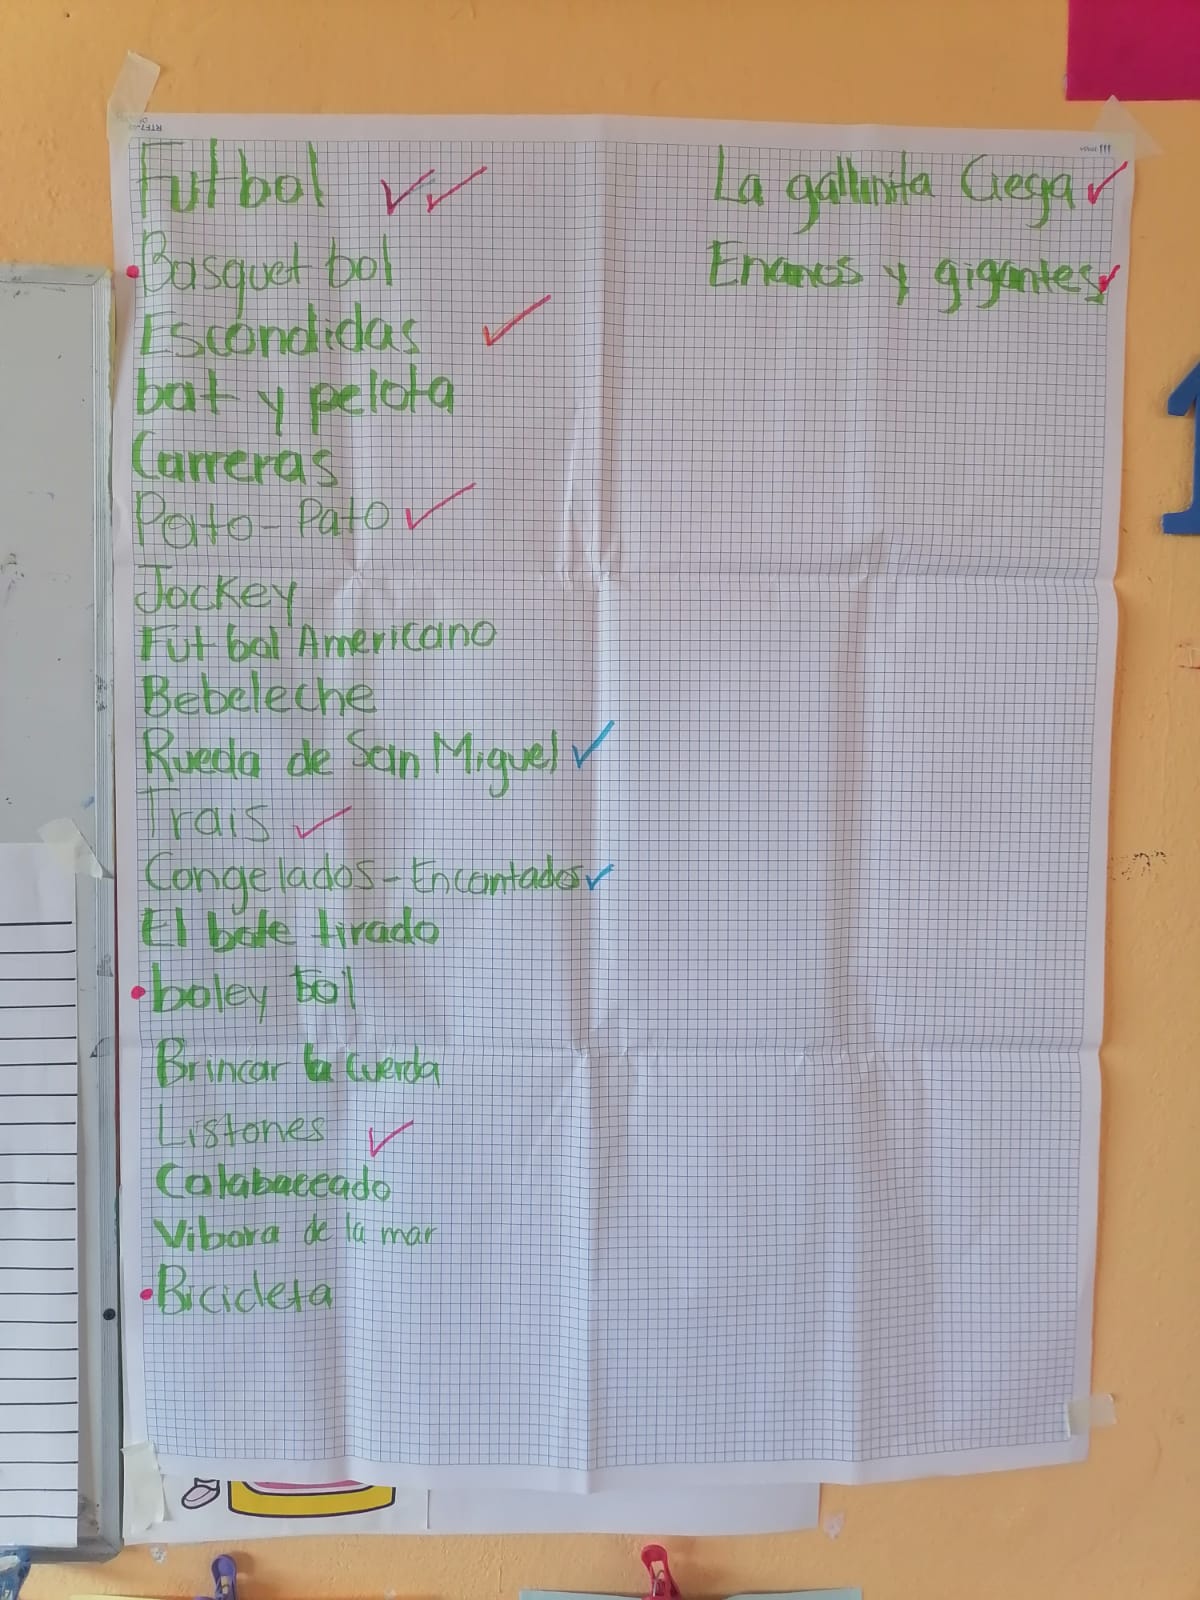 Futbol
Basquet bol
Escondidas
bat y pelota
Carreras
Pato-Pato
Jockey
Futbol Americano
Bebeleche
Rueda de San Miguel
Trais
Congelados-Encantados
El bote tirado
boley bol
Brincar la Cuerda
Listones
Calabaceado
Vibora de la mar
Bicicleta
La gallinita Ciega
Enanos y gigantes